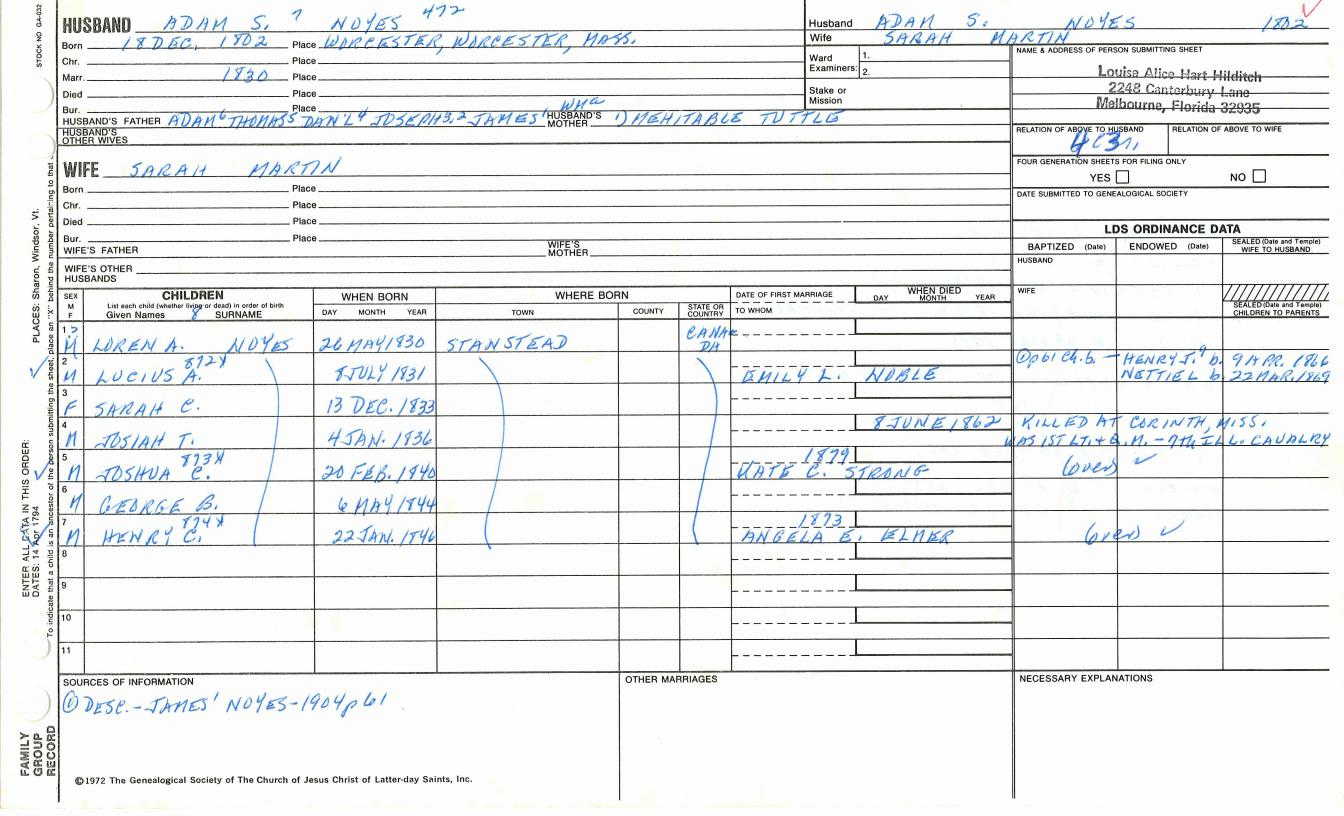 STOCK NO GA-032
HUSBAND ADAM S. 7 NOYES 472
Born 18 DEC. 1802 Place WORCESTER, WORCESTER, MASS.
Chr. Place
Marr. 1830 Place
Died Place
Bur. Place
HUSBAND'S FATHER ADAM 6 THOMAS 5 DAN'L 4 JOSEPH 3,2 JAMES 1 WM a HUSBAND'S MOTHER 1) MEHITABLE TUTTLE
HUSBAND'S OTHER WIVES
Husband ADAM S. NOYES 1802
Wife SARAH MARTIN
Ward Examiners: 1.
2.
Stake or Mission
NAME & ADDRESS OF PERSON SUBMITTING SHEET
Louise Alice Hart Hilditch
2248 Canterbury Lane
Melbourne, Florida 32935
RELATION OF ABOVE TO HUSBAND RELATION OF ABOVE TO WIFE
FOUR GENERATION SHEETS FOR FILING ONLY
YES NO
DATE SUBMITTED TO GENEALOGICAL SOCIETY
WIFE SARAH MARTIN
Born Place
Chr. Place
Died Place
Bur. Place
WIFE'S FATHER WIFE'S MOTHER
WIFE'S OTHER HUSBANDS
LDS ORDINANCE DATA
BAPTIZED (Date) ENDOWED (Date) SEALED (Date and Temple) WIFE TO HUSBAND
HUSBAND
WIFE
SEALED (Date and Temple) CHILDREN TO PARENTS
SEX M F
CHILDREN
List each child (whether living or dead) in order of birth
Given Names 8 SURNAME
WHEN BORN
DAY MONTH YEAR
WHERE BORN
TOWN COUNTY STATE OR COUNTRY
DATE OF FIRST MARRIAGE
TO WHOM
WHEN DIED
DAY MONTH YEAR
1 M LOREN A. NOYES 26 MAY 1830 STANSTEAD CANADA
2 M LUCIUS A. 872X 8 JULY 1831 EMILY L. NOBLE ① p 61 Ch. b - HENRY J. 9 b. 9 APR. 1866
NETTIE L b. 22 MAR. 1869
3 F SARAH C. 13 DEC. 1833
4 M JOSIAH T. 4 JAN. 1836 8 JUNE 1862 KILLED AT CORINTH, MISS.
WAS 1ST LT. + Q.M. - 7th ILL. CAVALRY
5 M JOSHUA C. 873X 20 FEB. 1840 1879 KATE C. STRONG (over) ✓
6 M GEORGE B. 6 MAY 1844
7 M HENRY C. 874X 22 JAN. 1846 1873 ANGELA E. ELMER (over) ✓
8
9
10
11
SOURCES OF INFORMATION
① DESC. - JAMES 1 NOYES - 1904 p 61
OTHER MARRIAGES
NECESSARY EXPLANATIONS
©1972 The Genealogical Society of The Church of Jesus Christ of Latter-day Saints, Inc.
PLACES: Sharon, Windsor, Vt.
ENTER ALL DATA IN THIS ORDER:
DATES: 14 Apr 1794
To indicate that a child is an ancestor of the person submitting the sheet, place an "X" behind the number pertaining to that
FAMILY GROUP RECORD